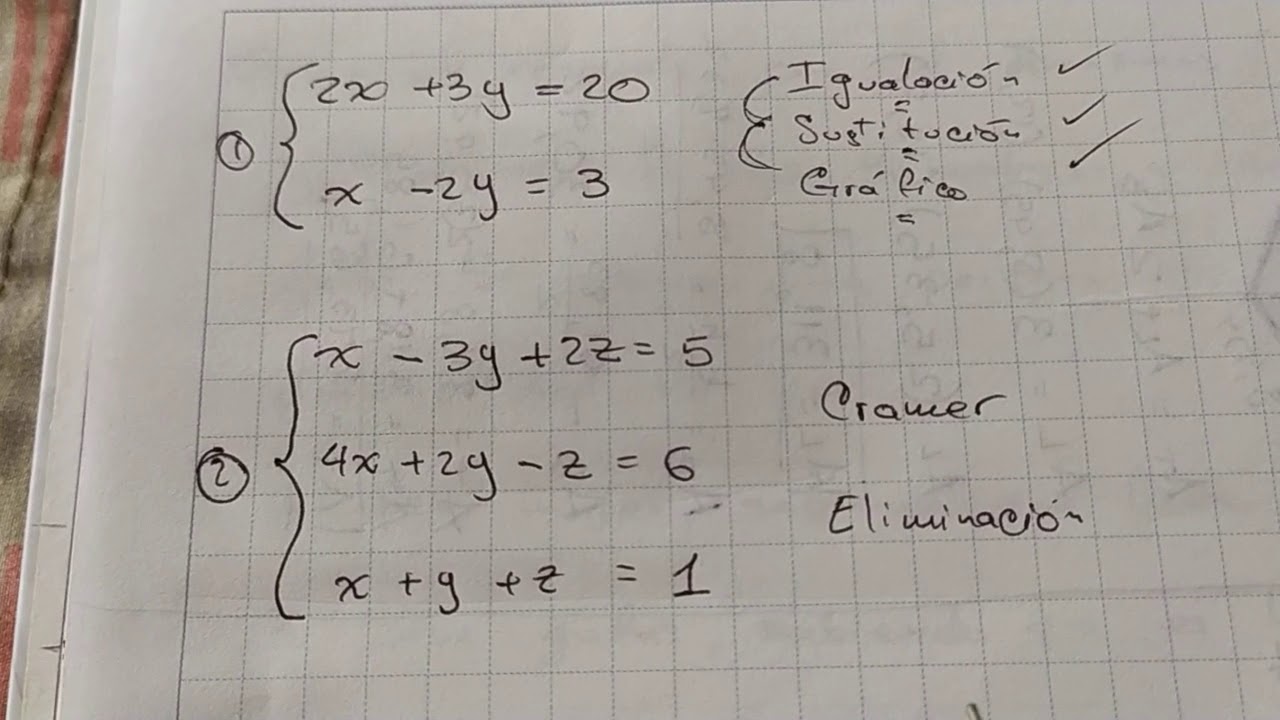 ① 2x + 3y = 20
x - 2y = 3
Igualación ✓
Sustitución ✓
Gráfico ✓
② x - 3y + 2z = 5
4x + 2y - z = 6
x + y + z = 1
Cramer
Eliminación